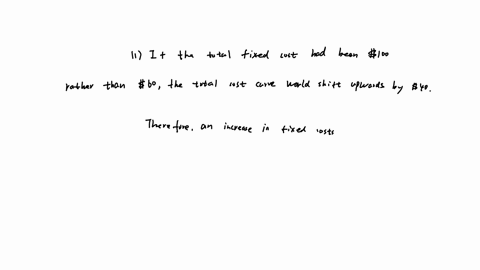 11) If the total fixed cost had been $100
rather than $60, the total cost curve would shift upwards by $40.
Therefore, an increase in fixed costs